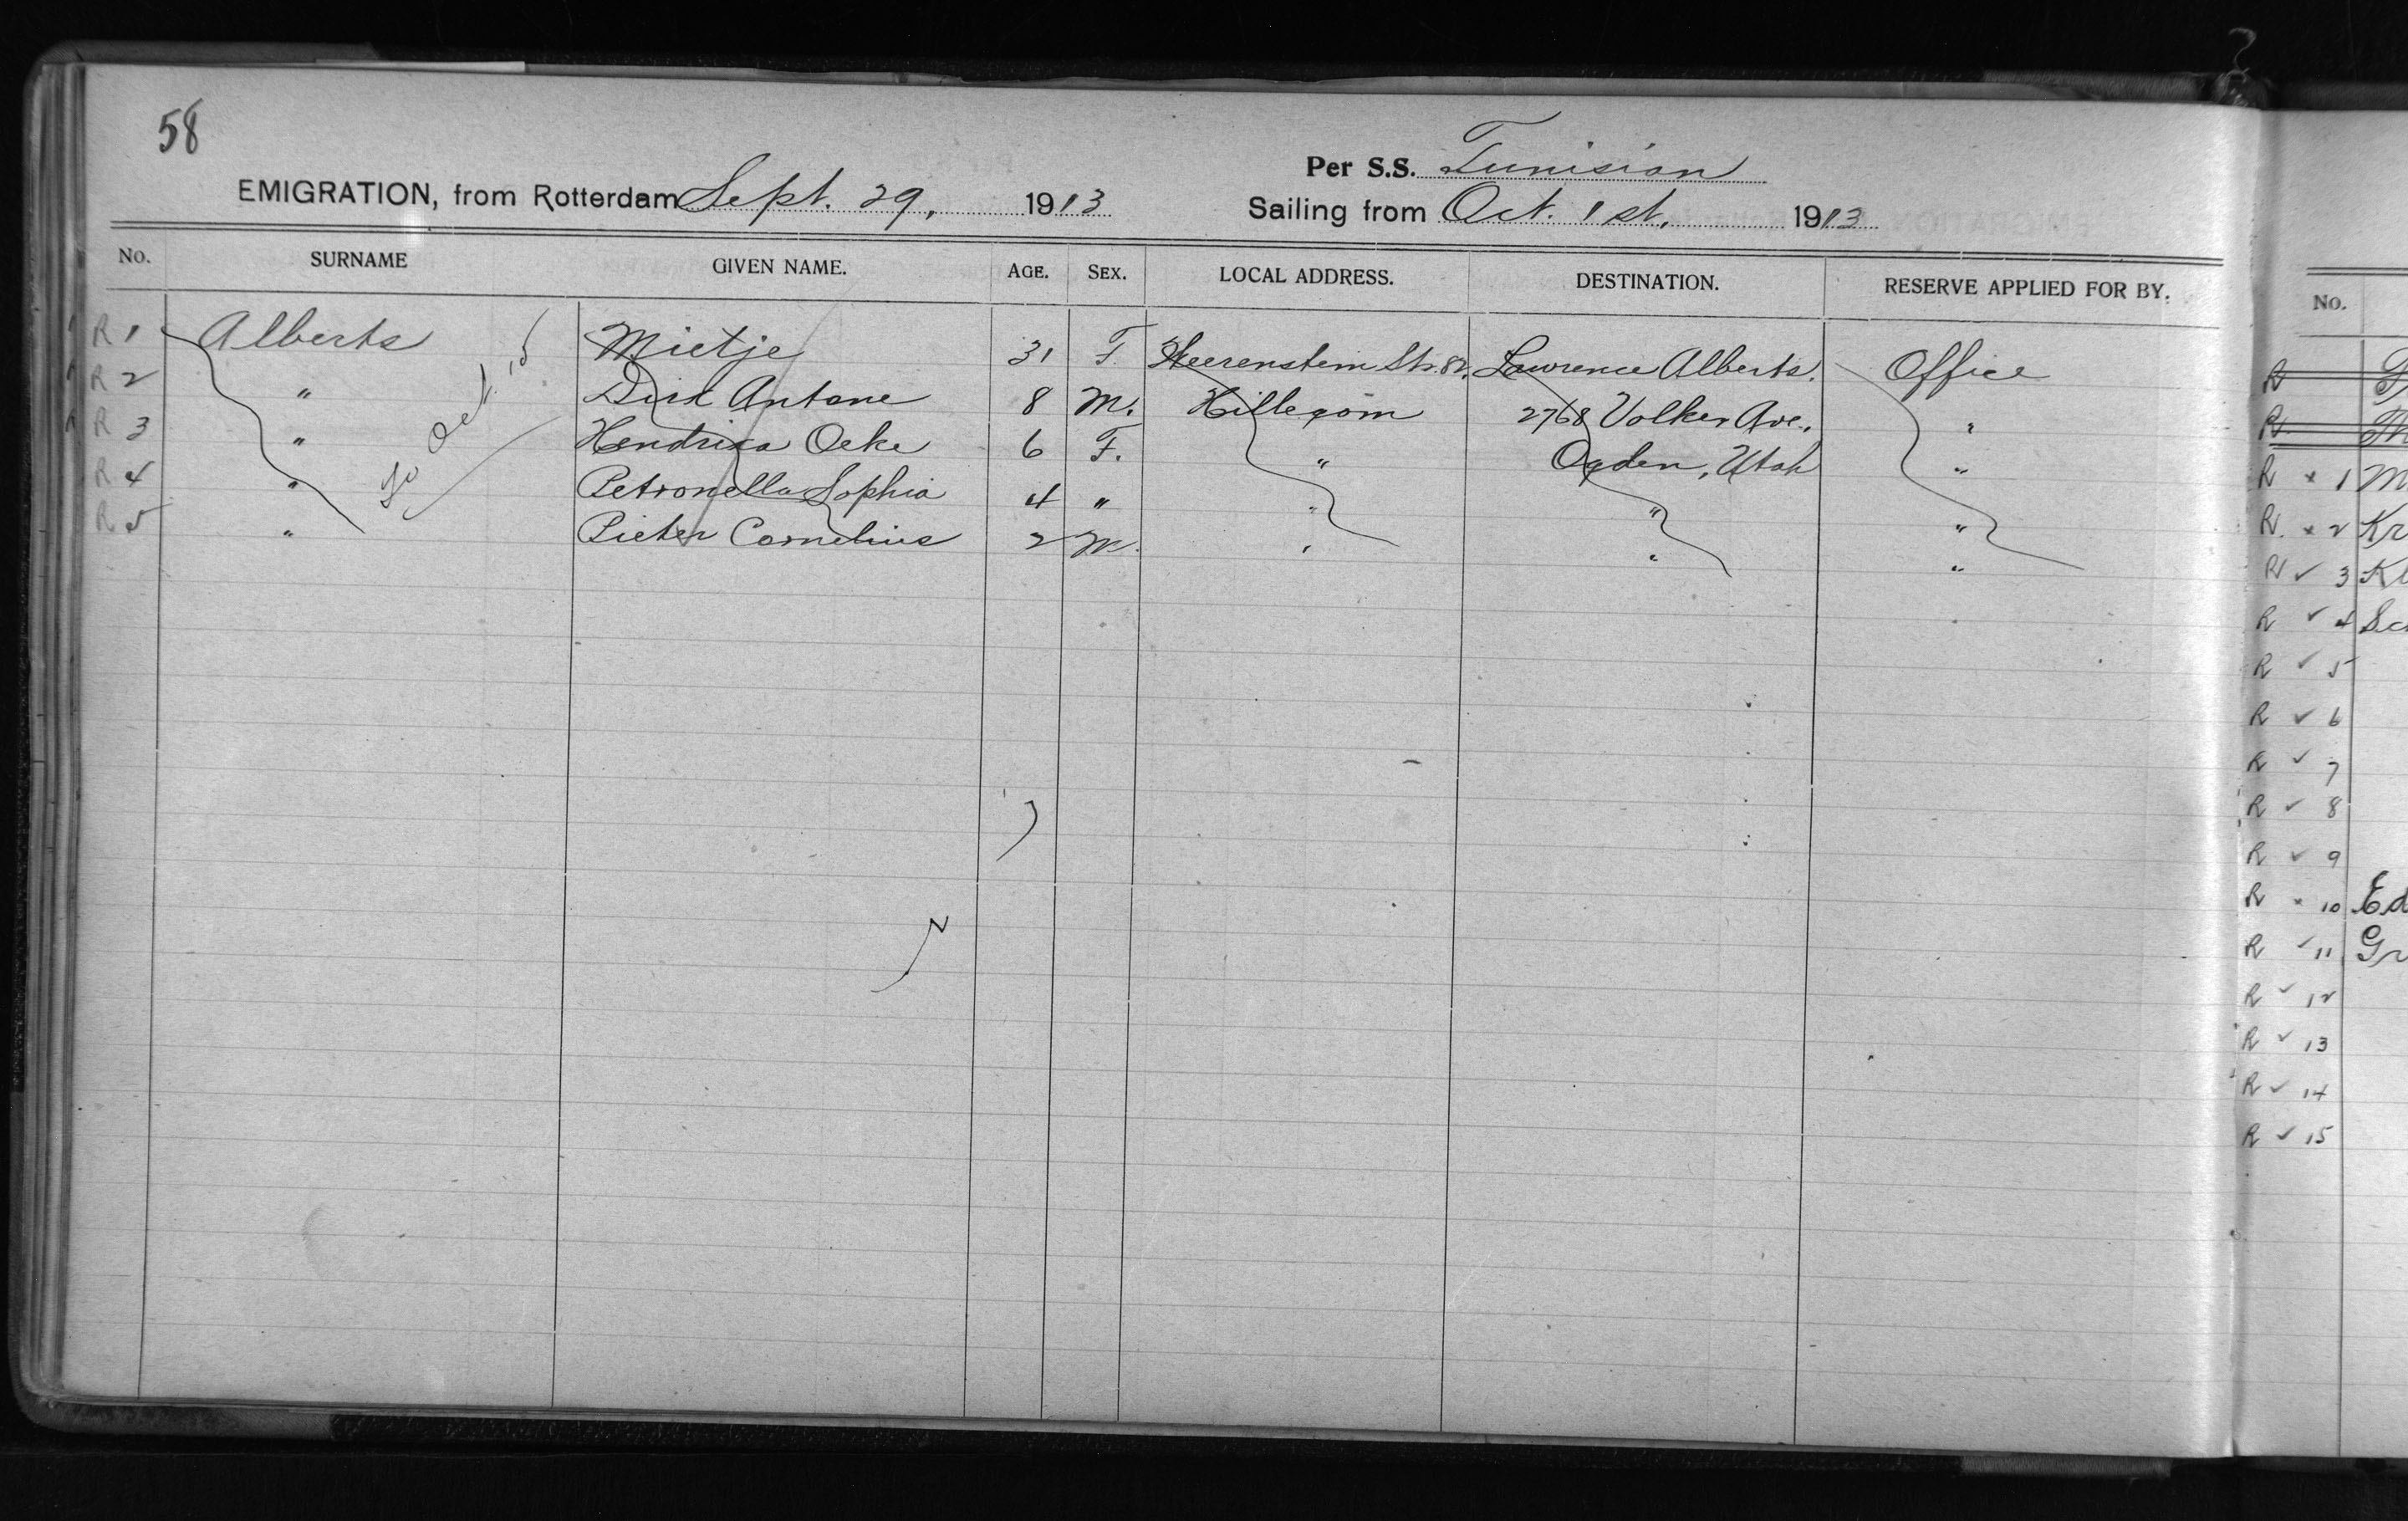 58
Per S.S. Tunisian
EMIGRATION, from Rotterdam Sept. 29, 1913
Sailing from Oct. 1st, 1913
No. SURNAME GIVEN NAME. AGE. SEX. LOCAL ADDRESS. DESTINATION. RESERVE APPLIED FOR BY.
R 1 Alberts Mietje 31 F Heerenstein Str. 82, Lawrence Alberts. Office
R 2 " Dirk Antone 8 M. Hillegom 2768 Volker Ave. "
R 3 " Hendrika Oeke 6 F. " Ogden, Utah "
R 4 " Petronella Sophia 4 " " " "
R 5 " Pieter Cornelius 2 M. " " "
to Oct. 15
No.
R
R
R × 1 M
R. × 2 Kr
R ✓ 3 Kl
R ✓ 4 Sc
R ✓ 5
R ✓ 6
R ✓ 7
R ✓ 8
R ✓ 9
R × 10 Ed
R ✓ 11 Gr
R ✓ 12
R ✓ 13
R ✓ 14
R ✓ 15